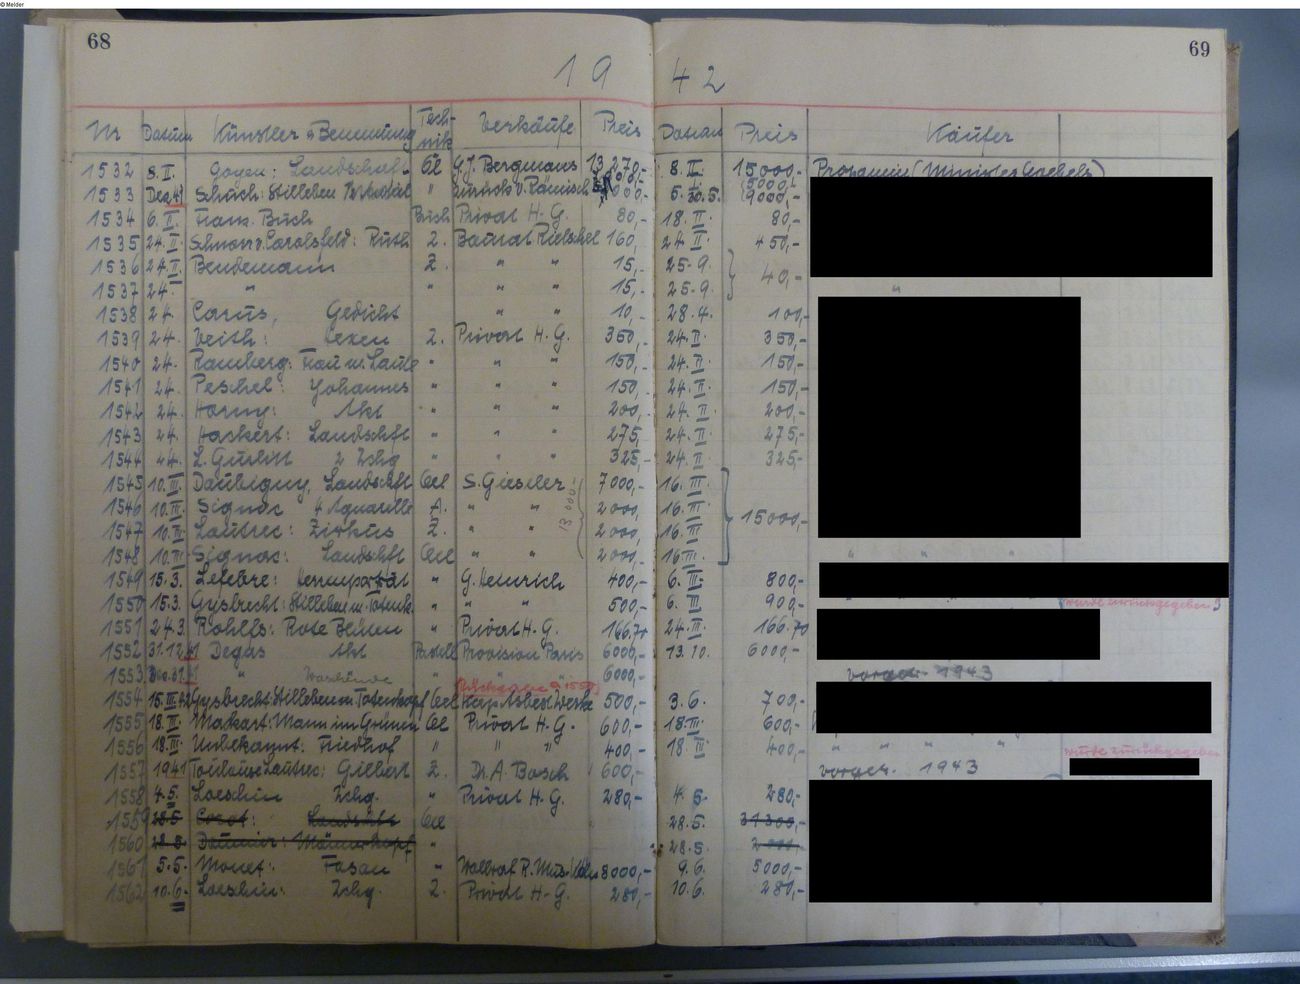 © Melder
68
69
19 42
Nr Datum Künstler u. Benennung Technik Verkäufe Preis Datum Preis Käufer
1532 8.II. Goyen: Landschaft Öl G.J. Bergmans 13 270,- 8.II. 15000,-
1533 Dez.41 Schuch: Stilleben " zurück v. 5.30.5. 9000,-
1534 6.II. Franz. Buch Buch Privat H.G. 80,- 18.II. 80,-
1535 24.II. Schnorr v. Carolsfeld: Ruth Z. Baurat Rietschel 160,- 24.II. 450,-
1536 24.II. Bendemann Z. " " 15,- 25.9. 40,-
1537 24. " " " " 15,- 25.9. "
1538 24. Carus, Gedicht " " 10,- 28.4. 100,-
1539 24. Veith: Z. Privat H.G. 350,- 24.II. 350,-
1540 24. Ramberg: Frau m. Laute " " " 150,- 24.II. 150,-
1541 24. Peschel: Johannes " " " 150,- 24.II. 150,-
1542 24. Horny: Akt " " " 200,- 24.II. 200,-
1543 24. Hackert: Landschft " " " 275,- 24.II. 275,-
1544 24. L. Gurlitt 2 Zchg " " " 325,- 24.II. 325,-
1545 10.III. Daubigny, Landschft Oel S. Giesler 7000,- 16.III.
1546 10.III. Signac 4 Aquarelle A. " " 2000,- 16.III. 15000,-
1547 10.III. Lautrec: Zirkus Z. " " 2000,- 16.III.
13 000,-
1548 10.III. Signac: Landschft Oel " " 2000,- 16.III. " " "
1549 15.3. Lefebre: Herrenporträt " G. Heinrich 400,- 6.III. 800,-
1550 15.3. Gysbrecht: Stilleben m. Totenk. " " " 500,- 6.III. 900,- wurde zurückgegeben
1551 24.3. Rohlfs: Rote Blüten " Privat H.G. 166.70 24.III. 166.70
1552 31.12.41 Degas Akt Pastell Provision Paris 6000,- 13.10. 6000,-
1553 Dez.41 " " " 6000,- vorgetr. 1943
1554 15.III.42 Gysbrecht: Stilleben m. Totenkopf Oel Kap Asbest Werke 500,- 3.6. 700,-
1555 18.II. Makart: Mann im Grünen Oel Privat H.G. 600,- 18.III. 600,-
1556 18.III. Unbekannt: Friedhof " " " 400,- 18.II. 400,- " " " " wurde zurückgegeben
1557 1941 Toulouse Lautrec: Gilbert Z. Dr. A. Bosch 600,- vorgetr. 1943
1558 4.5. Loeschin Zchg. " Privat H.G. 280,- 4.5. 280,-
1559 28.5. Corot: Landschft Oel 28.5. 31300,-
1560 28.5. Daumier: Männerkopf " 28.5. 2000,-
1561 5.5. Monet: Fasan " Wallraf R. Mus. Köln 8000,- 9.6. 5000,-
1562 10.6. Loeschin: Zchg. Z. Privat H.G. 280,- 10.6. 280,-